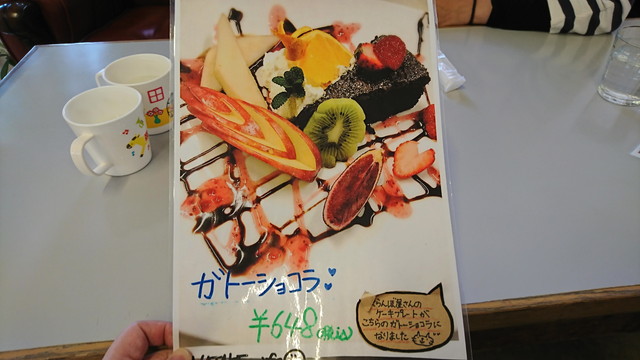 ガトーショコラ
¥648(税込)
らんぼ屋さんの
ケーキプレートが
こちらのガトーショコラに
なりました